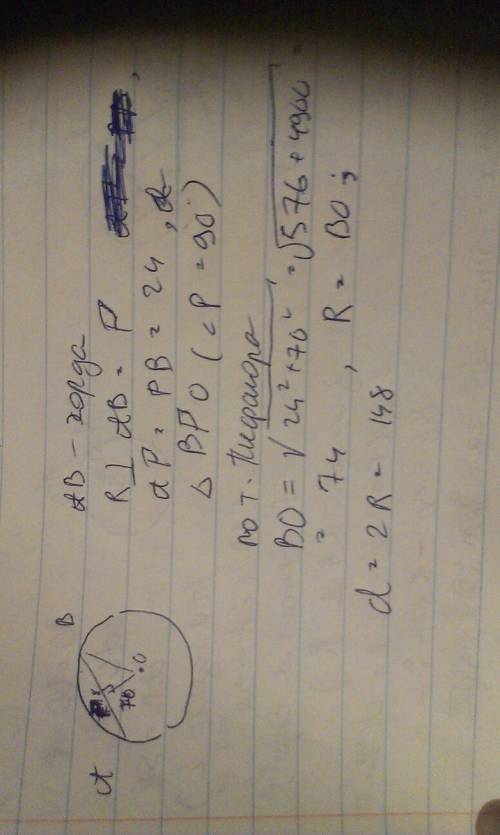 AB – хорда
R ⊥ AB = P
AP = PB = 24,
△ BPO (∠P = 90°)
по т. Пифагора
BO = √24² + 70² = √576 + 4900 =
= 74, R = BO;
d = 2R = 148
A
B
70
O